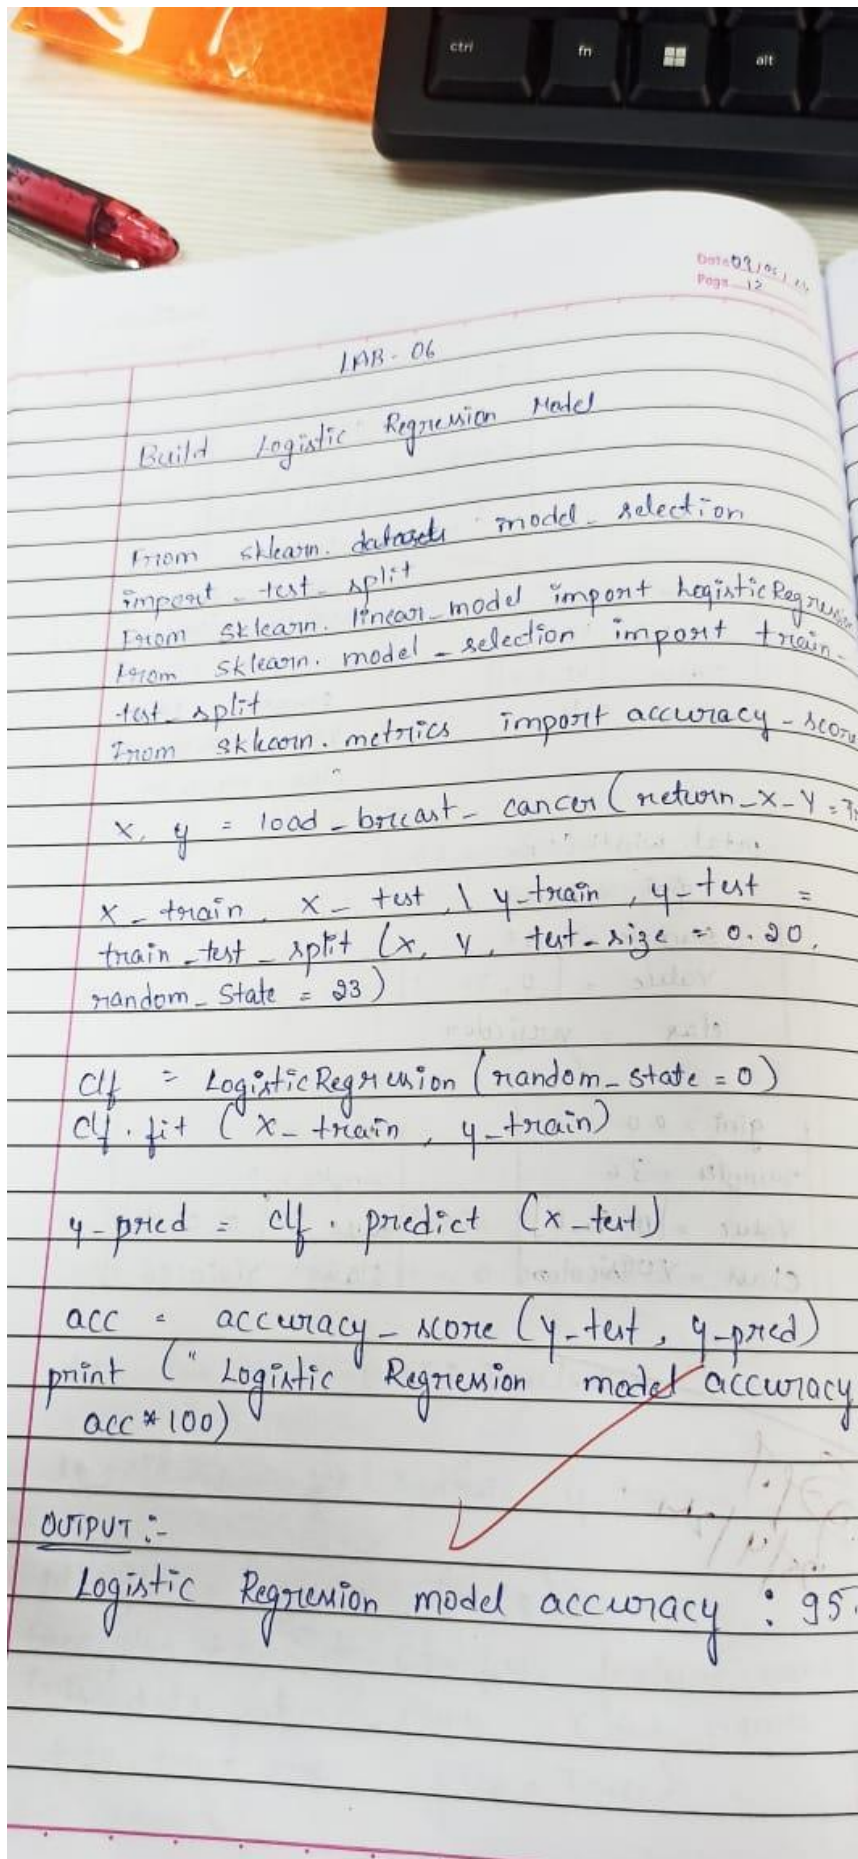 ctrl fn alt
Date 09/05/
Page 12
LAB - 06
Build Logistic Regression Model
From sklearn. datasets model_selection
import_test_split
From sklearn. linear_model import LogisticRegression
From sklearn. model_selection import train_
test_split
From sklearn. metrics import accuracy_score
x, y = load_breast_cancer(return_X_Y =
x_train, x_test, \ y_train, y_test =
train_test_split (x, y, test_size = 0.20,
random_state = 23)
clf = LogisticRegression (random_state = 0)
clf.fit (x_train, y_train)
y_pred = clf.predict (x_test)
acc = accuracy_score (y_test, y_pred)
print (" Logistic Regression model accuracy
acc * 100)
OUTPUT :-
Logistic Regression model accuracy : 95.